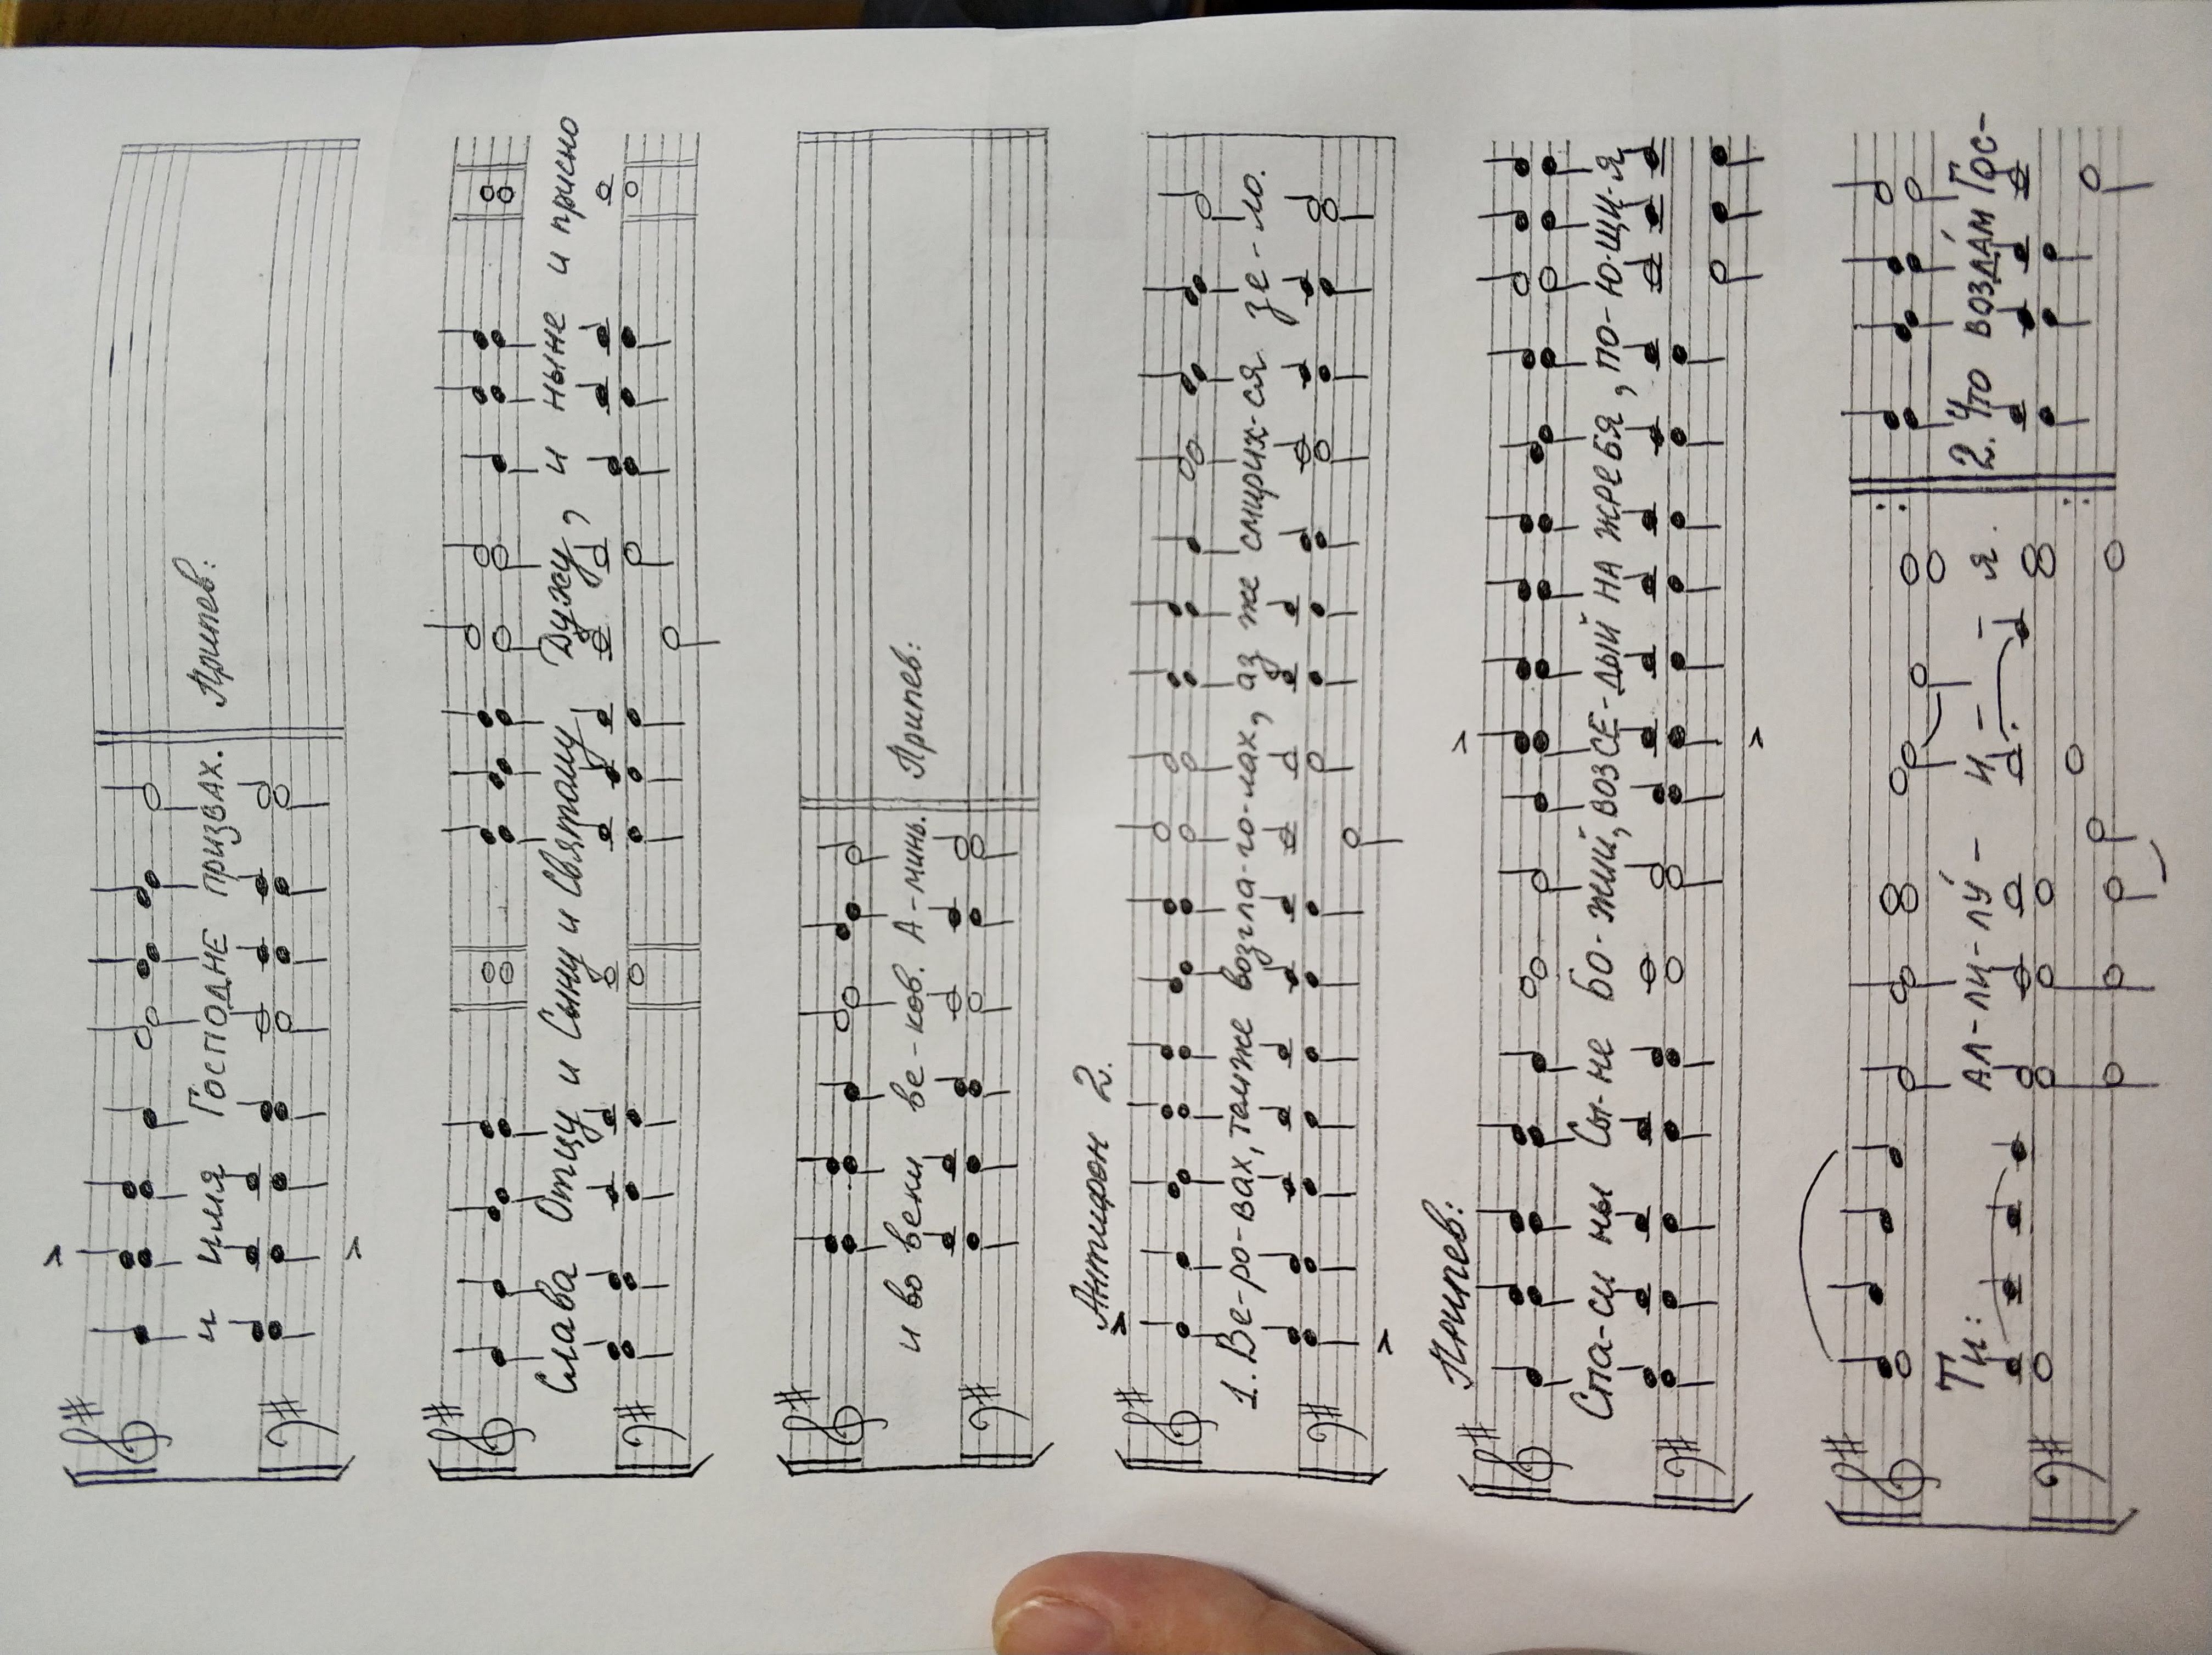 и имя Господне призвах. Припев:
Слава Отцу и Сыну и Святому Духу, и ныне и присно
и во веки ве-ков. А-минь. Припев:
Антифон 2.
1. Ве-ро-вах, тамже возгла-го-лах, аз же смирих-ся зе-ло.
Припев:
Спа-си ны Сы-не Бо-жий, возсе-дый на жребя, по-ю-щи-я
Ти: Ал-ли-лу́-и-я. 2. Что возда́м Гос-